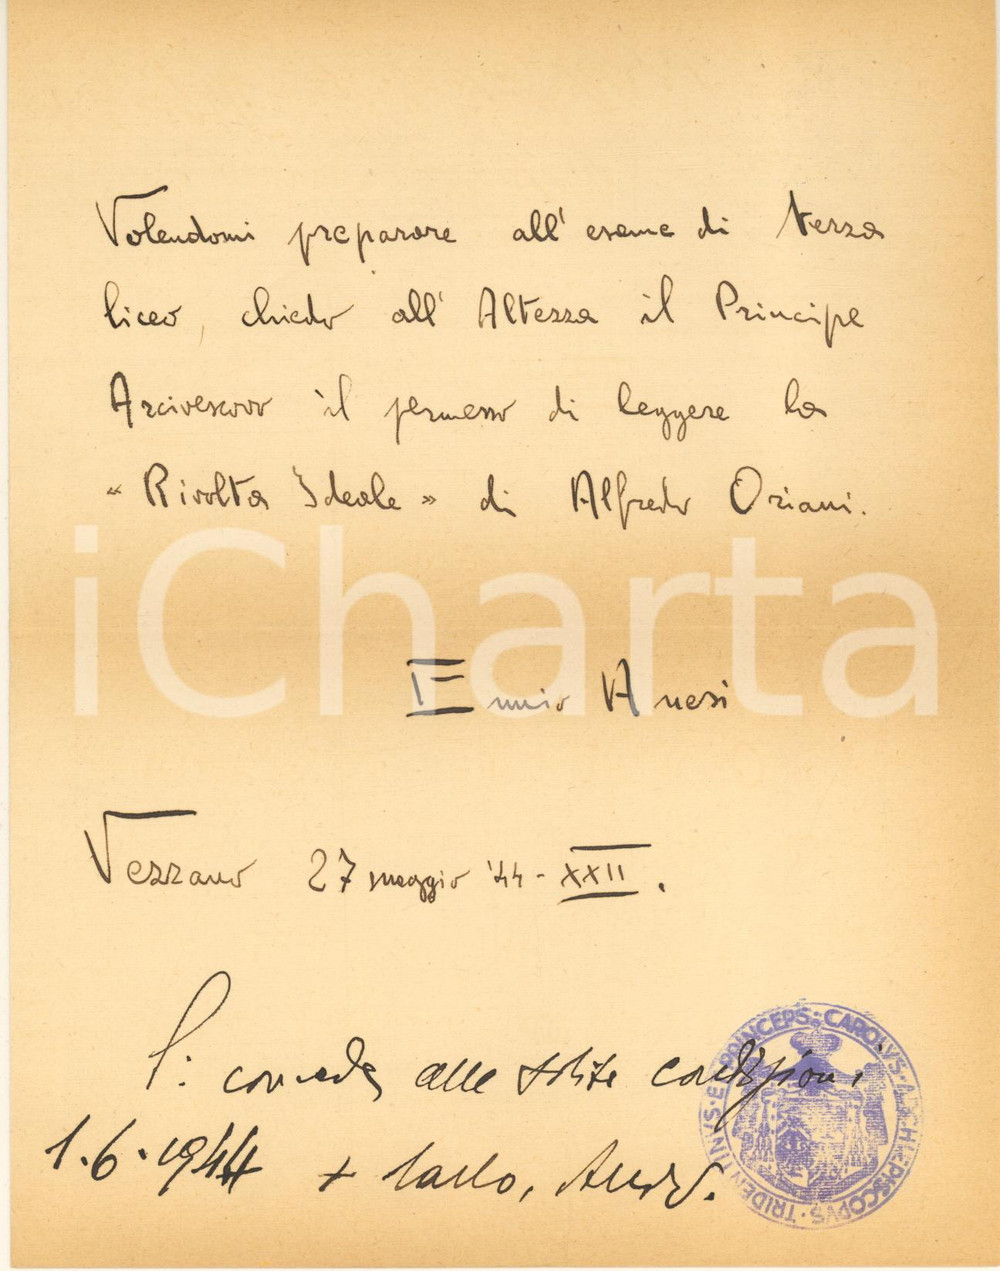 Volendomi preparare all'esame di terza
liceo, chiedo all'Altezza il Principe
Arcivescovo il permesso di leggere la
"Rivolta Ideale" di Alfredo Oriani.
iCharta
Ennio Anesi
Vezzano 27 maggio '44 - XXII.
Si conceda alle solite condizioni
1.6.1944 + Carlo, Arciv.
CAROLVS · ARCHIEPISCOPVS · TRIDENTINVS · E · PRINCEPS ·